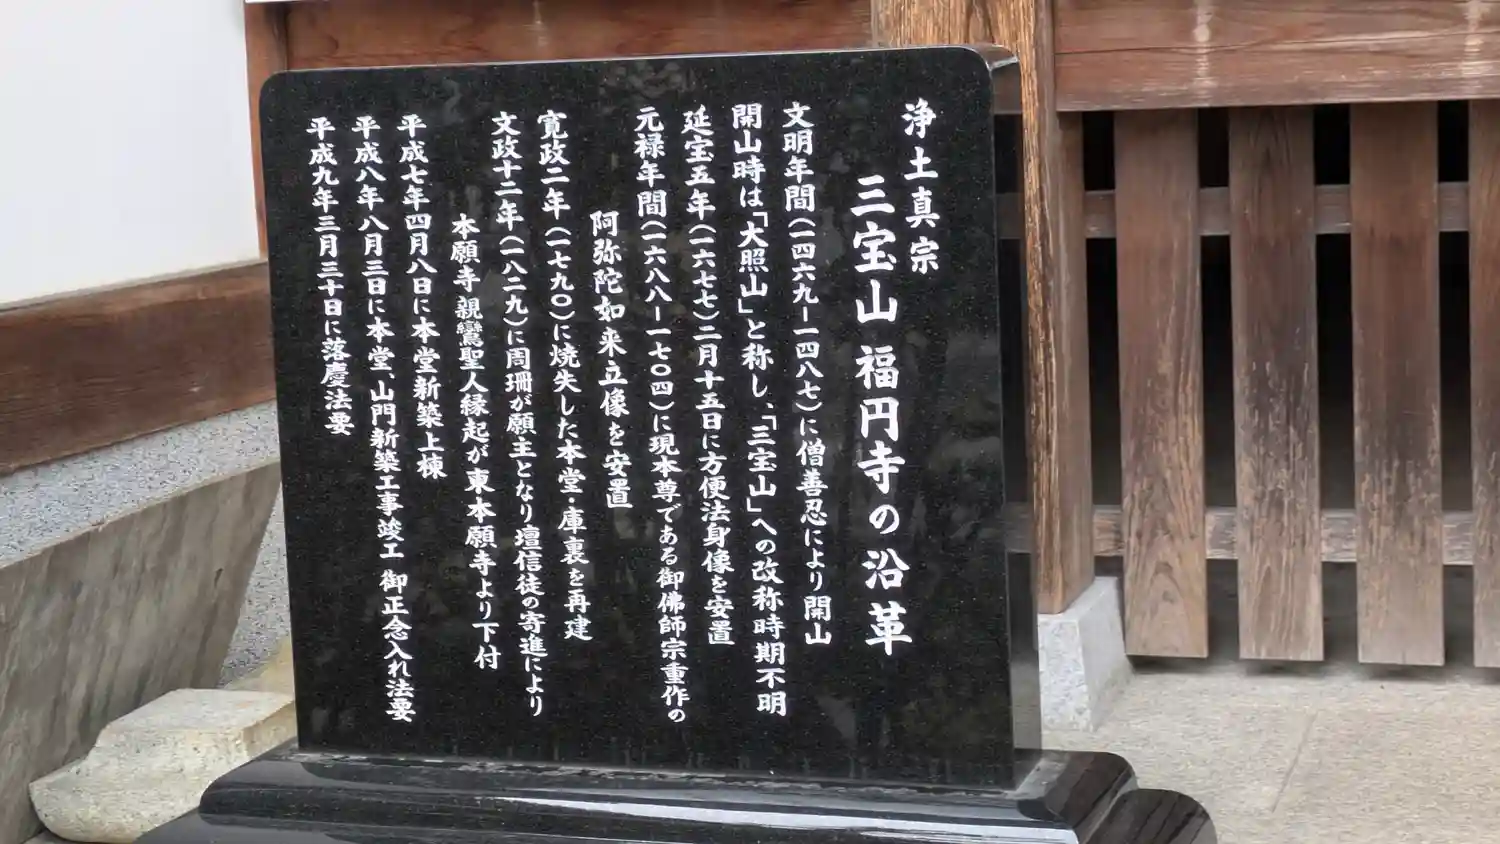 浄土真宗
三宝山 福円寺の沿革
文明年間(一四六九−一四八七)に僧善忍により開山
開山時は「大照山」と称し、「三宝山」への改称時期不明
延宝五年(一六七七)二月十五日に方便法身像を安置
元禄年間(一六八八−一七〇四)に現本尊である御佛師宗重作の
阿弥陀如来立像を安置
寛政二年(一七九〇)に焼失した本堂・庫裏を再建
文政十二年(一八二九)に周珊が願主となり壇信徒の寄進により
本願寺親鸞聖人縁起が東本願寺より下付
平成七年四月八日に本堂新築上棟
平成八年八月三日に本堂、山門新築工事竣工 御正念入れ法要
平成九年三月三十日に落慶法要